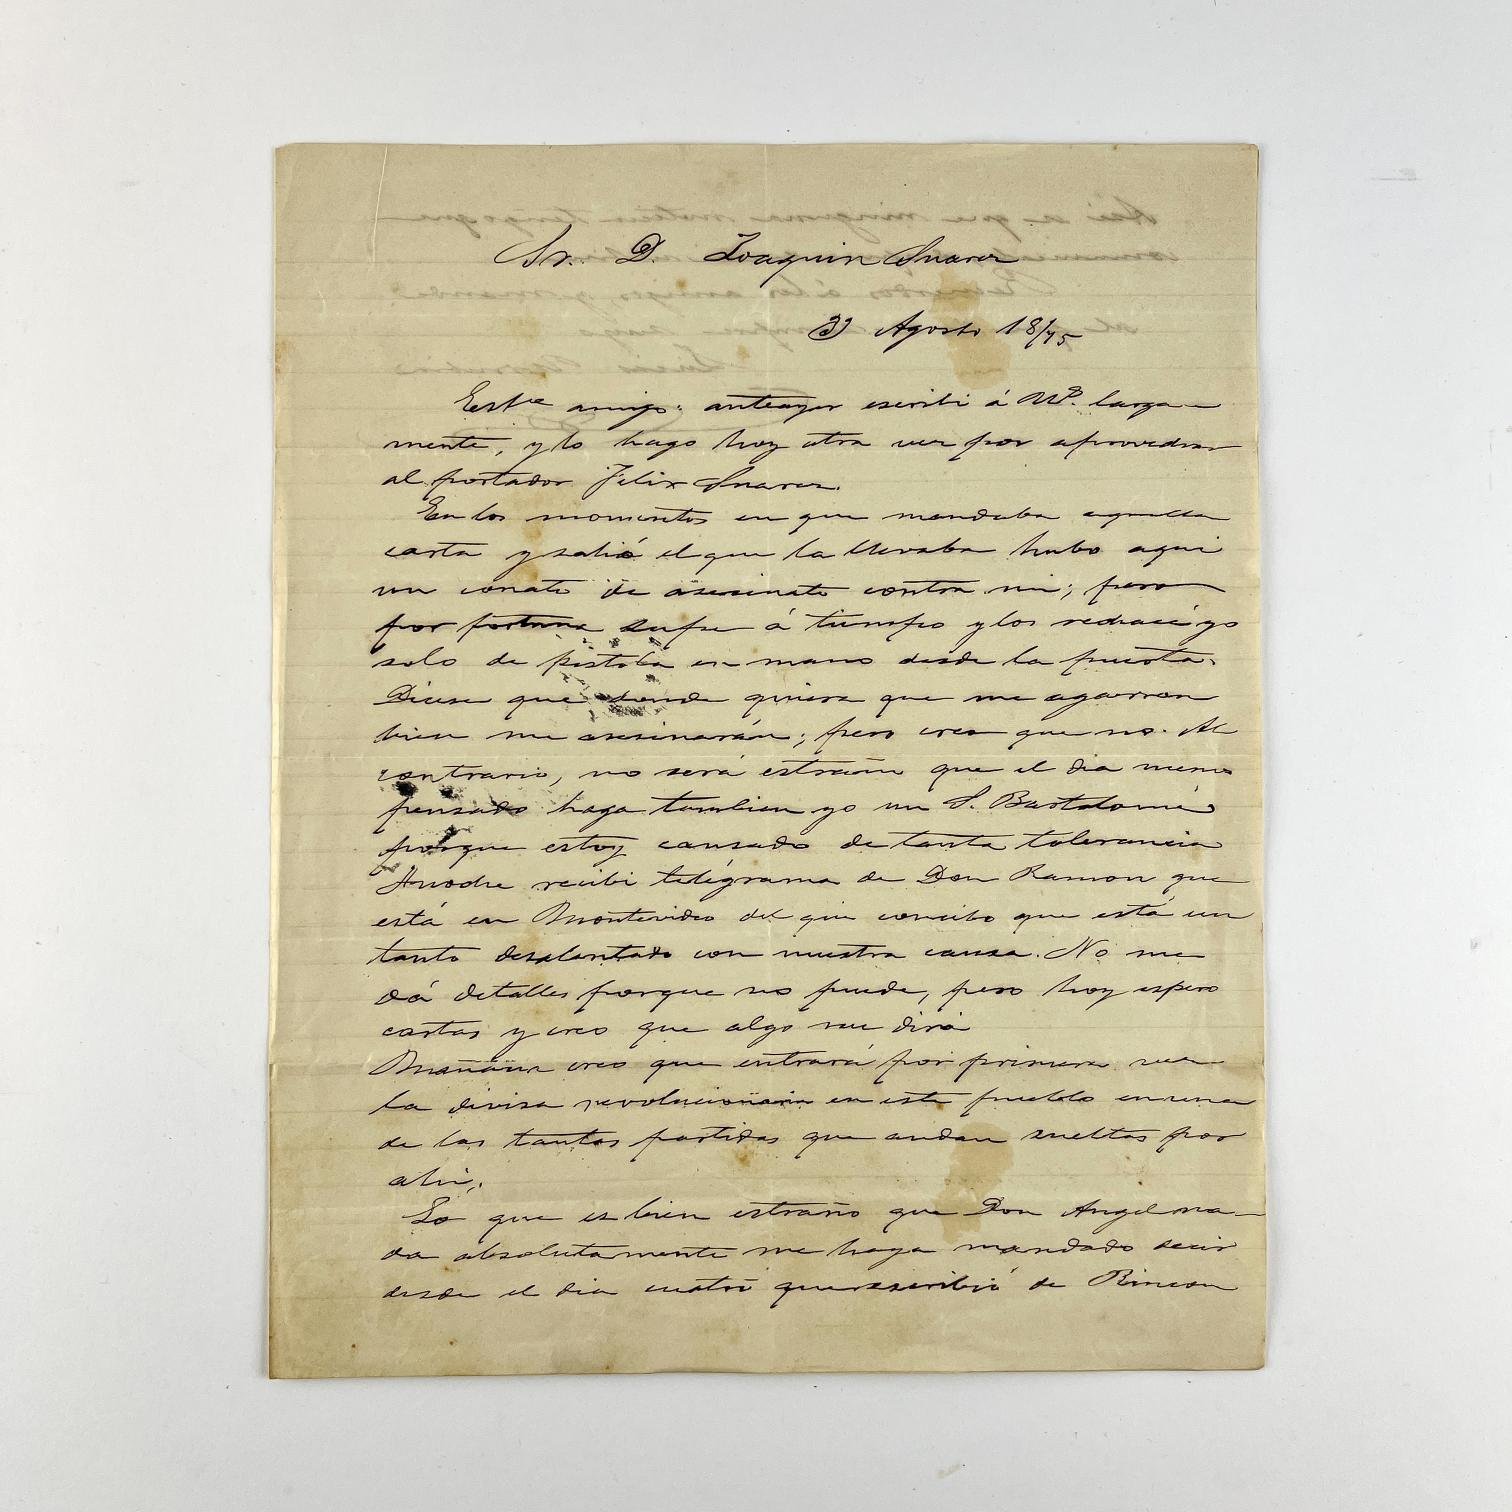 Sr. D. Joaquin Suarez
31 Agosto 18/75
Estdo amigo: anteayer escribi á Vd. larga-
mente, y lo hago hoy otra vez por aprovechar
al portador Felix Suarez.
En los momentos en que mandaba aquella
carta y salió el que la llevaba hubo aqui
un conato de asesinato contra mi; pero
por fortuna supe á tiempo y los rechacé yo
solo de pistola en mano desde la puerta.
Dicese que donde quiera que me agarren
bien me asesinarán; pero creo que no. Al
contrario, no será estraño que el dia menos
pensado haga tambien yo un S. Bartolomé
porque estoy cansado de tanta tolerancia
Anoche recibi telégrama de Don Ramon que
está en Montevideo del que concibo que está un
tanto desalentado con nuestra causa. No me
dá detalles porque no puede, pero hoy espero
cartas y creo que algo me dirá
Mañana creo que entrará por primera vez
la divisa revolucionaria en este pueblo en una
de las tantas partidas que andan sueltas por
ahi.
Lo que es bien estraño que Don Angel na-
da absolutamente me haya mandado decir
desde el dia cuatro que escribió de Rincon